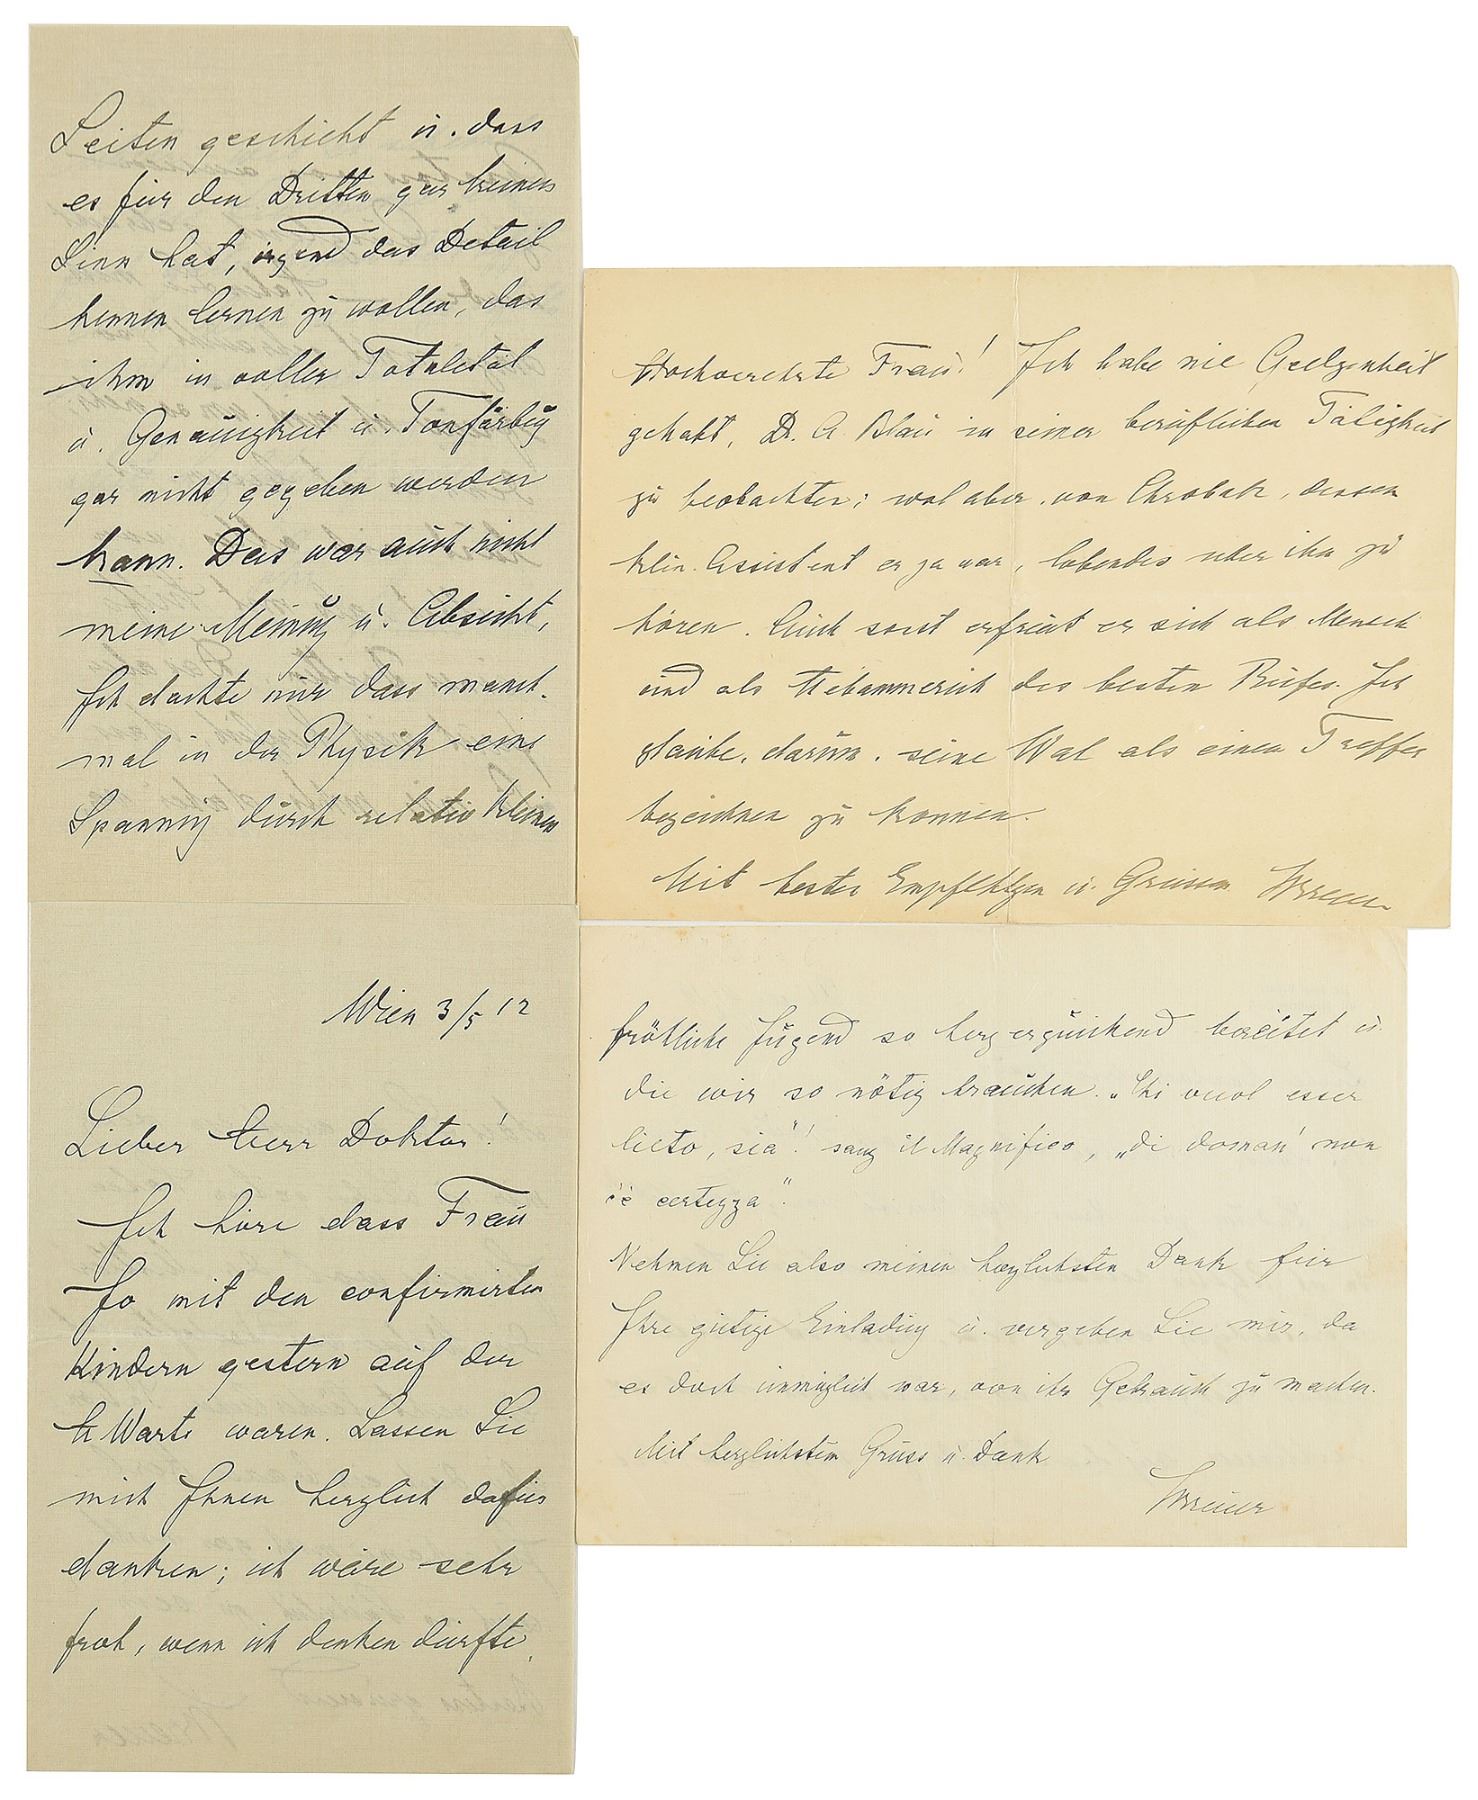 Seiten geschieht u. dass
es für den Dritten gar keinen
Sinn hat, irgend das Detail
kennen lernen zu wollen, das
ihm in voller Totalität
u. Genauigkeit u. Tonfärbg
gar nicht gegeben werden
kann. Das war auch nicht
meine Meinung u. Absicht,
Ich dachte nur dass manch-
mal in der Physik eine
Spannung durch relativ kleinen
Wien 3/5 12
Lieber Herr Doktor!
Ich höre dass Frau
Jo mit den confirmirten
Kindern gestern auf der
h Warte waren. Lassen Sie
mich Ihnen herzlich dafür
danken; ich wäre sehr
froh, wenn ich denken dürfte,
Hochverehrte Frau! Ich habe nie Gelgenheit
gehabt, Dr. A. Blau in seiner beruflichen Tätigkeit
zu beobachten; wol aber, von Chrobak, dessen
klin. Assistent er ja war, lobendes über ihn zu
hören. Auch sonst erfreut er sich als Mensch
und als des besten Rufes. Ich
glaube, darum, seine Wal als einen Treffer
bezeichnen zu können.
Mit besten Empfehlgen u. Grüssen Breuer
fröhliche Jugend so herzerquickend bereitet u.
die wir so nötig brauchen. „Chi vuol esser
lieto, sia"! sang il Magnifico, „di doman' non
c'è certezza".
Nehmen Sie also meinen herzlichsten Dank für
Ihre gütige Einladung u. vergeben Sie mir, da
es doch unmöglich war, von ihr Gebrauch zu machen.
Mit herzlichstem Gruss u. Dank
Breuer